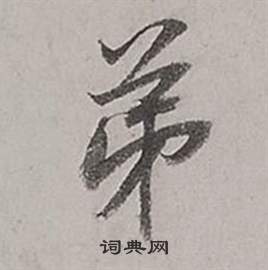 弟
词典网